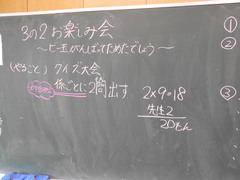 3の2 お楽しみ会
〜ビー玉がんばってためたでしょう〜
(やること) クイズ大会
係ごとに2問出す
2×9=18
先生2
20もん
①
②
③